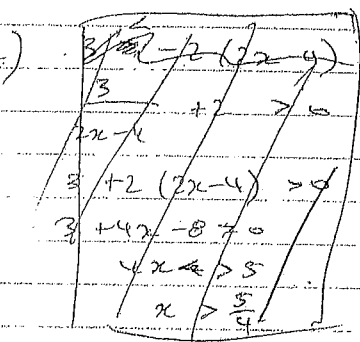 )
3 - 2 (2x-4)
3
+2 > 0
2x-4
3 +2 (2x-4) > 0
3 +4x -8 > 0
4x > 5
x > 5/4